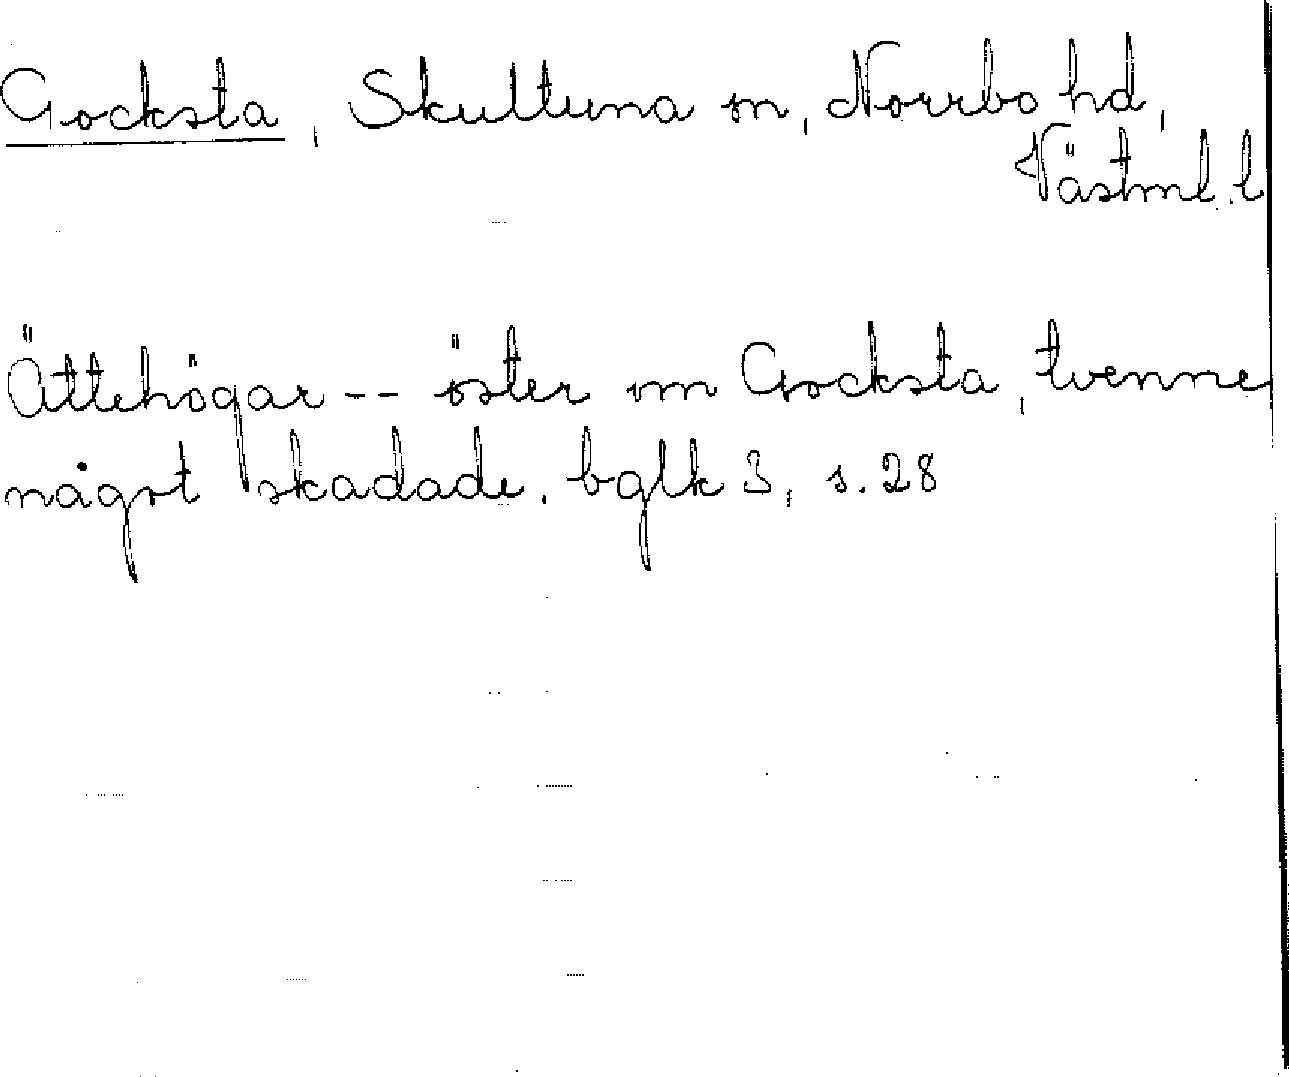 Gocksta, Skultuna sn, Norrbo hd,
Västml. l
Ättehögar -- öster om Gocksta, tvenne
något skadade. bglk 3, s. 28